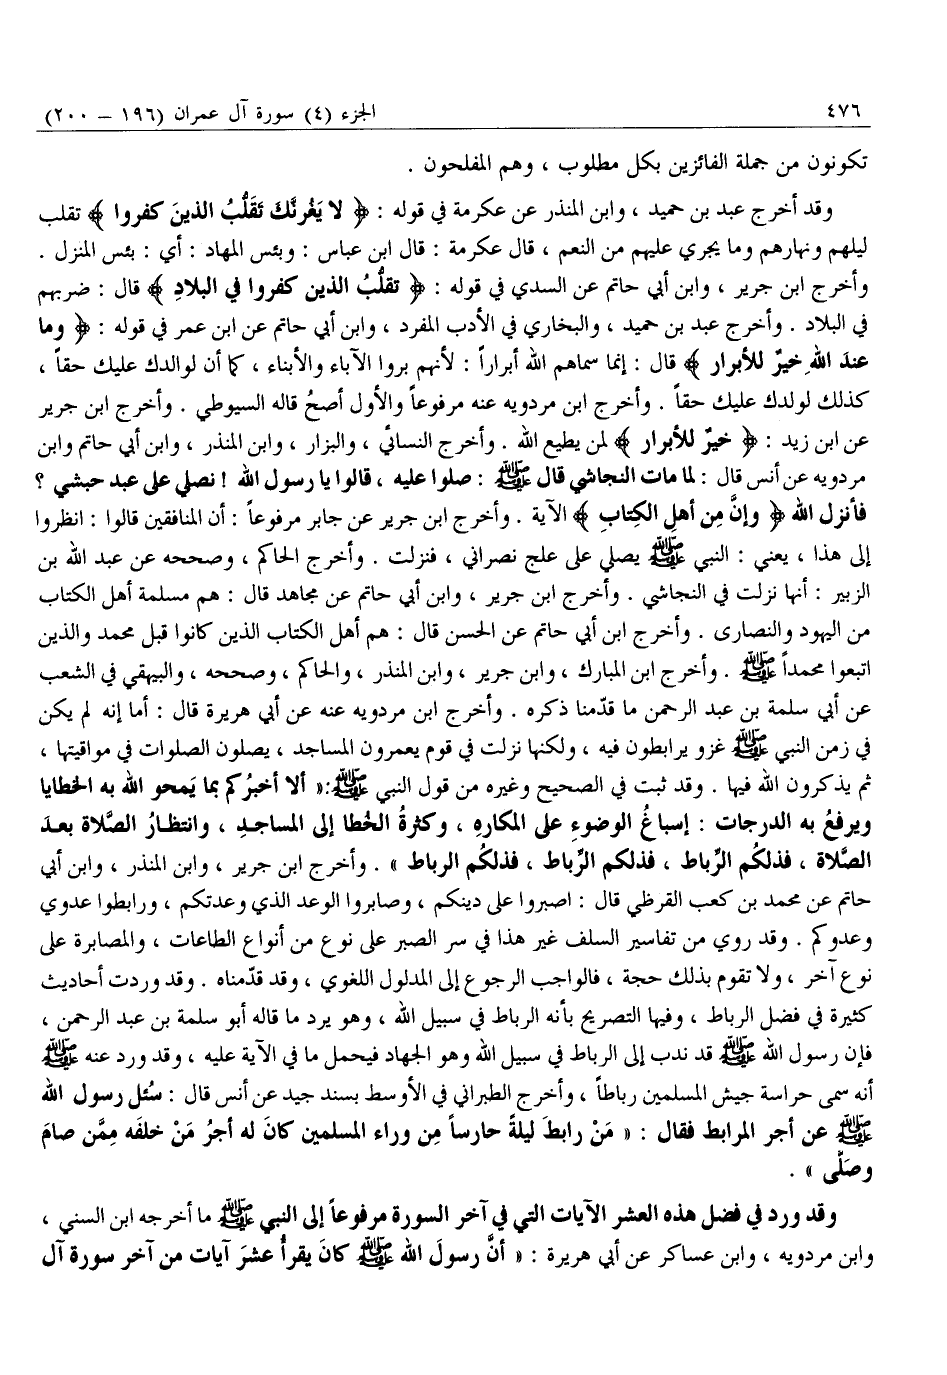 ٤٧٦ الجزء (٤) سورة آل عمران (١٩٦ – ٢٠٠)
تكونون من جملة الفائزين بكل مطلوب ، وهم المفلحون .
وقد أخرج عبد بن حميد ، وابن المنذر عن عكرمة في قوله : ﴿ لا يَغُرنَّكَ تَقَلُّبُ الذينَ كفروا ﴾ تقلب
ليلهم ونهارهم وما يجري عليهم من النعم ، قال عكرمة : قال ابن عباس : وبئس المهاد : أي : بئس المنزل .
وأخرج ابن جرير ، وابن أبي حاتم عن السدي في قوله : ﴿ تقلُّبُ الذين كفروا في البلادِ ﴾ قال : ضربهم
في البلاد . وأخرج عبد بن حميد ، والبخاري في الأدب المفرد ، وابن أبي حاتم عن ابن عمر في قوله : ﴿ وما
عندَ اللهِ خيرٌ للأبرار ﴾ قال : إنما سماهم الله أبراراً : لأنهم بروا الآباء والأبناء ، كما أن لوالدك عليك حقاً ،
كذلك لولدك عليك حقاً . وأخرج ابن مردويه عنه مرفوعاً والأول أصحُ قاله السيوطي . وأخرج ابن جرير
عن ابن زيد : ﴿ خيرٌ للأبرار ﴾ لمن يطيع الله . وأخرج النسائي ، والبزار ، وابن المنذر ، وابن أبي حاتم وابن
مردويه عن أنس قال : لما مات النجاشي قال ﷺ : صلوا عليه ، قالوا يا رسول الله ! نصلي على عبد حبشي ؟
فأنزل الله ﴿ وإنَّ مِن أهلِ الكِتابِ ﴾ الآية . وأخرج ابن جرير عن جابر مرفوعاً : أن المنافقين قالوا : انظروا
إلى هذا ، يعني : النبي ﷺ يصلي على علج نصراني ، فنزلت . وأخرج الحاكم ، وصححه عن عبد الله بن
الزبير : أنها نزلت في النجاشي . وأخرج ابن جرير ، وابن أبي حاتم عن مجاهد قال : هم مسلمة أهل الكتاب
من اليهود والنصارى . وأخرج ابن أبي حاتم عن الحسن قال : هم أهل الكتاب الذين كانوا قبل محمد والذين
اتبعوا محمداً ﷺ . وأخرج ابن المبارك ، وابن جرير ، وابن المنذر ، والحاكم ، وصححه ، والبيهقي في الشعب
عن أبي سلمة بن عبد الرحمن ما قدّمنا ذكره . وأخرج ابن مردويه عنه عن أبي هريرة قال : أما إنه لم يكن
في زمن النبي ﷺ غزو يرابطون فيه ، ولكنها نزلت في قوم يعمرون المساجد ، يصلون الصلوات في مواقيتها ،
ثم يذكرون الله فيها . وقد ثبت في الصحيح وغيره من قول النبي ﷺ:« ألا أخبرُكم بما يَمحو الله به الخطايا
ويرفعُ به الدرجات : إسباغُ الوضوءِ على المكارهِ ، وكثرةُ الخُطا إلى المساجدِ ، وانتظارُ الصَّلاة بعدَ
الصَّلاة ، فذلكُم الرِّباط ، فذلكم الرِّباط ، فذلكُم الرباط » . وأخرج ابن جرير ، وابن المنذر ، وابن أبي
حاتم عن محمد بن كعب القرظي قال : اصبروا على دينكم ، وصابروا الوعد الذي وعدتكم ، ورابطوا عدوي
وعدوكم . وقد روي من تفاسير السلف غير هذا في سر الصبر على نوع من أنواع الطاعات ، والمصابرة على
نوع آخر ، ولا تقوم بذلك حجة ، فالواجب الرجوع إلى المدلول اللغوي ، وقد قدّمناه . وقد وردت أحاديث
كثيرة في فضل الرباط ، وفيها التصريح بأنه الرباط في سبيل الله ، وهو يرد ما قاله أبو سلمة بن عبد الرحمن ،
فإن رسول الله ﷺ قد ندب إلى الرباط في سبيل الله وهو الجهاد فيحمل ما في الآية عليه ، وقد ورد عنه ﷺ
أنه سمى حراسة جيش المسلمين رباطاً ، وأخرج الطبراني في الأوسط بسند جيد عن أنس قال : سُئل رسول الله
ﷺ عن أجر المرابط فقال : « مَنْ رابطَ ليلةً حارساً مِن وراء المسلمين كانَ له أجرُ مَنْ خلفَه مِمَّن صامَ
وصَلَّى » .
وقد ورد في فضل هذه العشر الآيات التي في آخر السورة مرفوعاً إلى النبي ﷺ ما أخرجه ابن السني ،
وابن مردويه ، وابن عساكر عن أبي هريرة : « أنَّ رسولَ الله ﷺ كانَ يقرأُ عشرَ آيات من آخر سورة آل